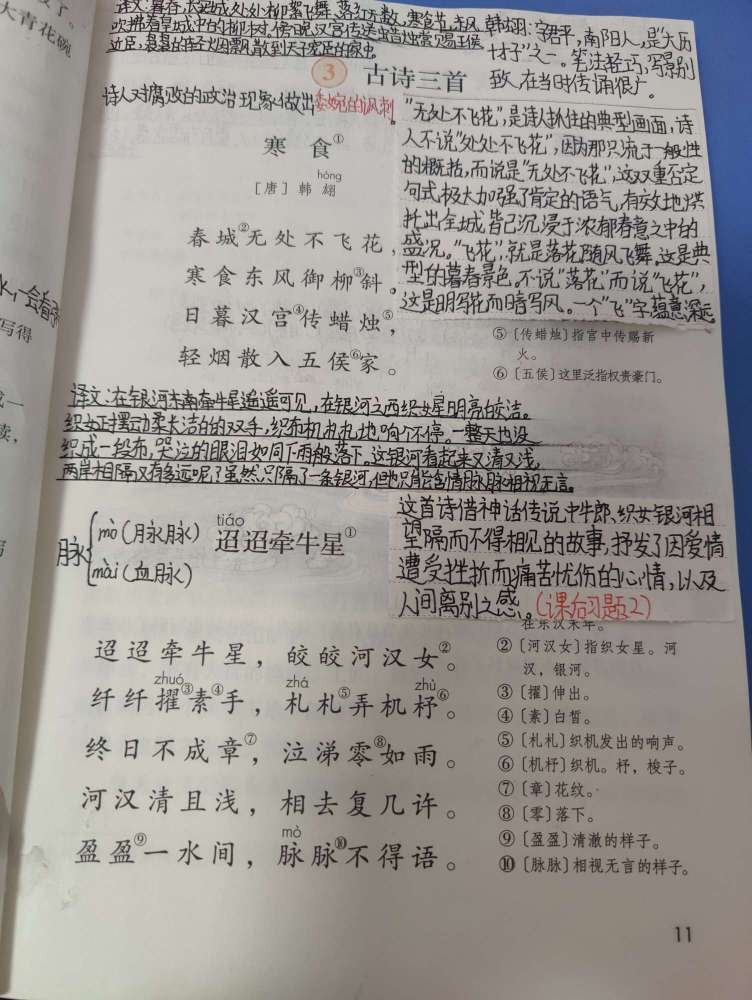 大青花碗
译文:暮春,长安城处处柳絮飞舞、落红无数,寒食节东风
吹拂着皇城中的柳树。傍晚,汉宫传送出蜡烛赏赐王侯
近臣,袅袅的轻烟飘散到天子宠臣的家中。
韩翃:字君平,南阳人,是"大历
十才子"之一。笔法轻巧,写景别
致,在当时传诵很广。
3 古诗三首
诗人对腐败的政治现象做出委婉的讽刺。
寒食①
hóng
[唐] 韩翃
春城②无处不飞花,
寒食东风御柳③斜。
日暮汉宫④传蜡烛⑤,
轻烟散入五侯⑥家。
"无处不飞花",是诗人抓住的典型画面,诗
人不说"处处不飞花",因为那只流于一般性
的概括,而说是"无处不飞花",这双重否定
句式极大加强了肯定的语气,有效地烘
托出全城皆已沉浸于浓郁春意之中的
盛况。"飞花",就是落花随风飞舞。这是典
型的暮春景色。不说"落花"而说"飞花",
这是明写花而暗写风。一个"飞"字,蕴意深远
⑤〔传蜡烛〕指宫中传赐新
火。
⑥〔五侯〕这里泛指权贵豪门。
写得
译文:在银河东南牵牛星遥遥可见,在银河之西织女星明亮皎洁。
织女正摆动柔长洁白的双手,织布机札札地响个不停。一整天也没
织成一段布,哭泣的眼泪如同下雨般落下。这银河看起来又清又浅,
两岸相隔又有多远呢?虽然只隔了一条银河,但也只能含情脉脉相视无言。
脉
mò(脉脉)
mài(血脉)
tiáo
迢迢牵牛星①
这首诗借神话传说中牛郎、织女银河相
望隔而不得相见的故事,抒发了因爱情
遭受挫折而痛苦忧伤的心情,以及
人间离别之感。(课后习题2)
在东汉末年。
迢迢牵牛星,皎皎河汉女②。
zhuó zhá zhù
纤纤擢③素④手,札札⑤弄机杼⑥。
终日不成章⑦,泣涕零⑧如雨。
河汉清且浅,相去复几许。
mò
盈盈⑨一水间,脉脉⑩不得语。
②〔河汉女〕指织女星。河
汉,银河。
③〔擢〕伸出。
④〔素〕白皙。
⑤〔札札〕织机发出的响声。
⑥〔机杼〕织机。杼,梭子。
⑦〔章〕花纹。
⑧〔零〕落下。
⑨〔盈盈〕清澈的样子。
⑩〔脉脉〕相视无言的样子。
11